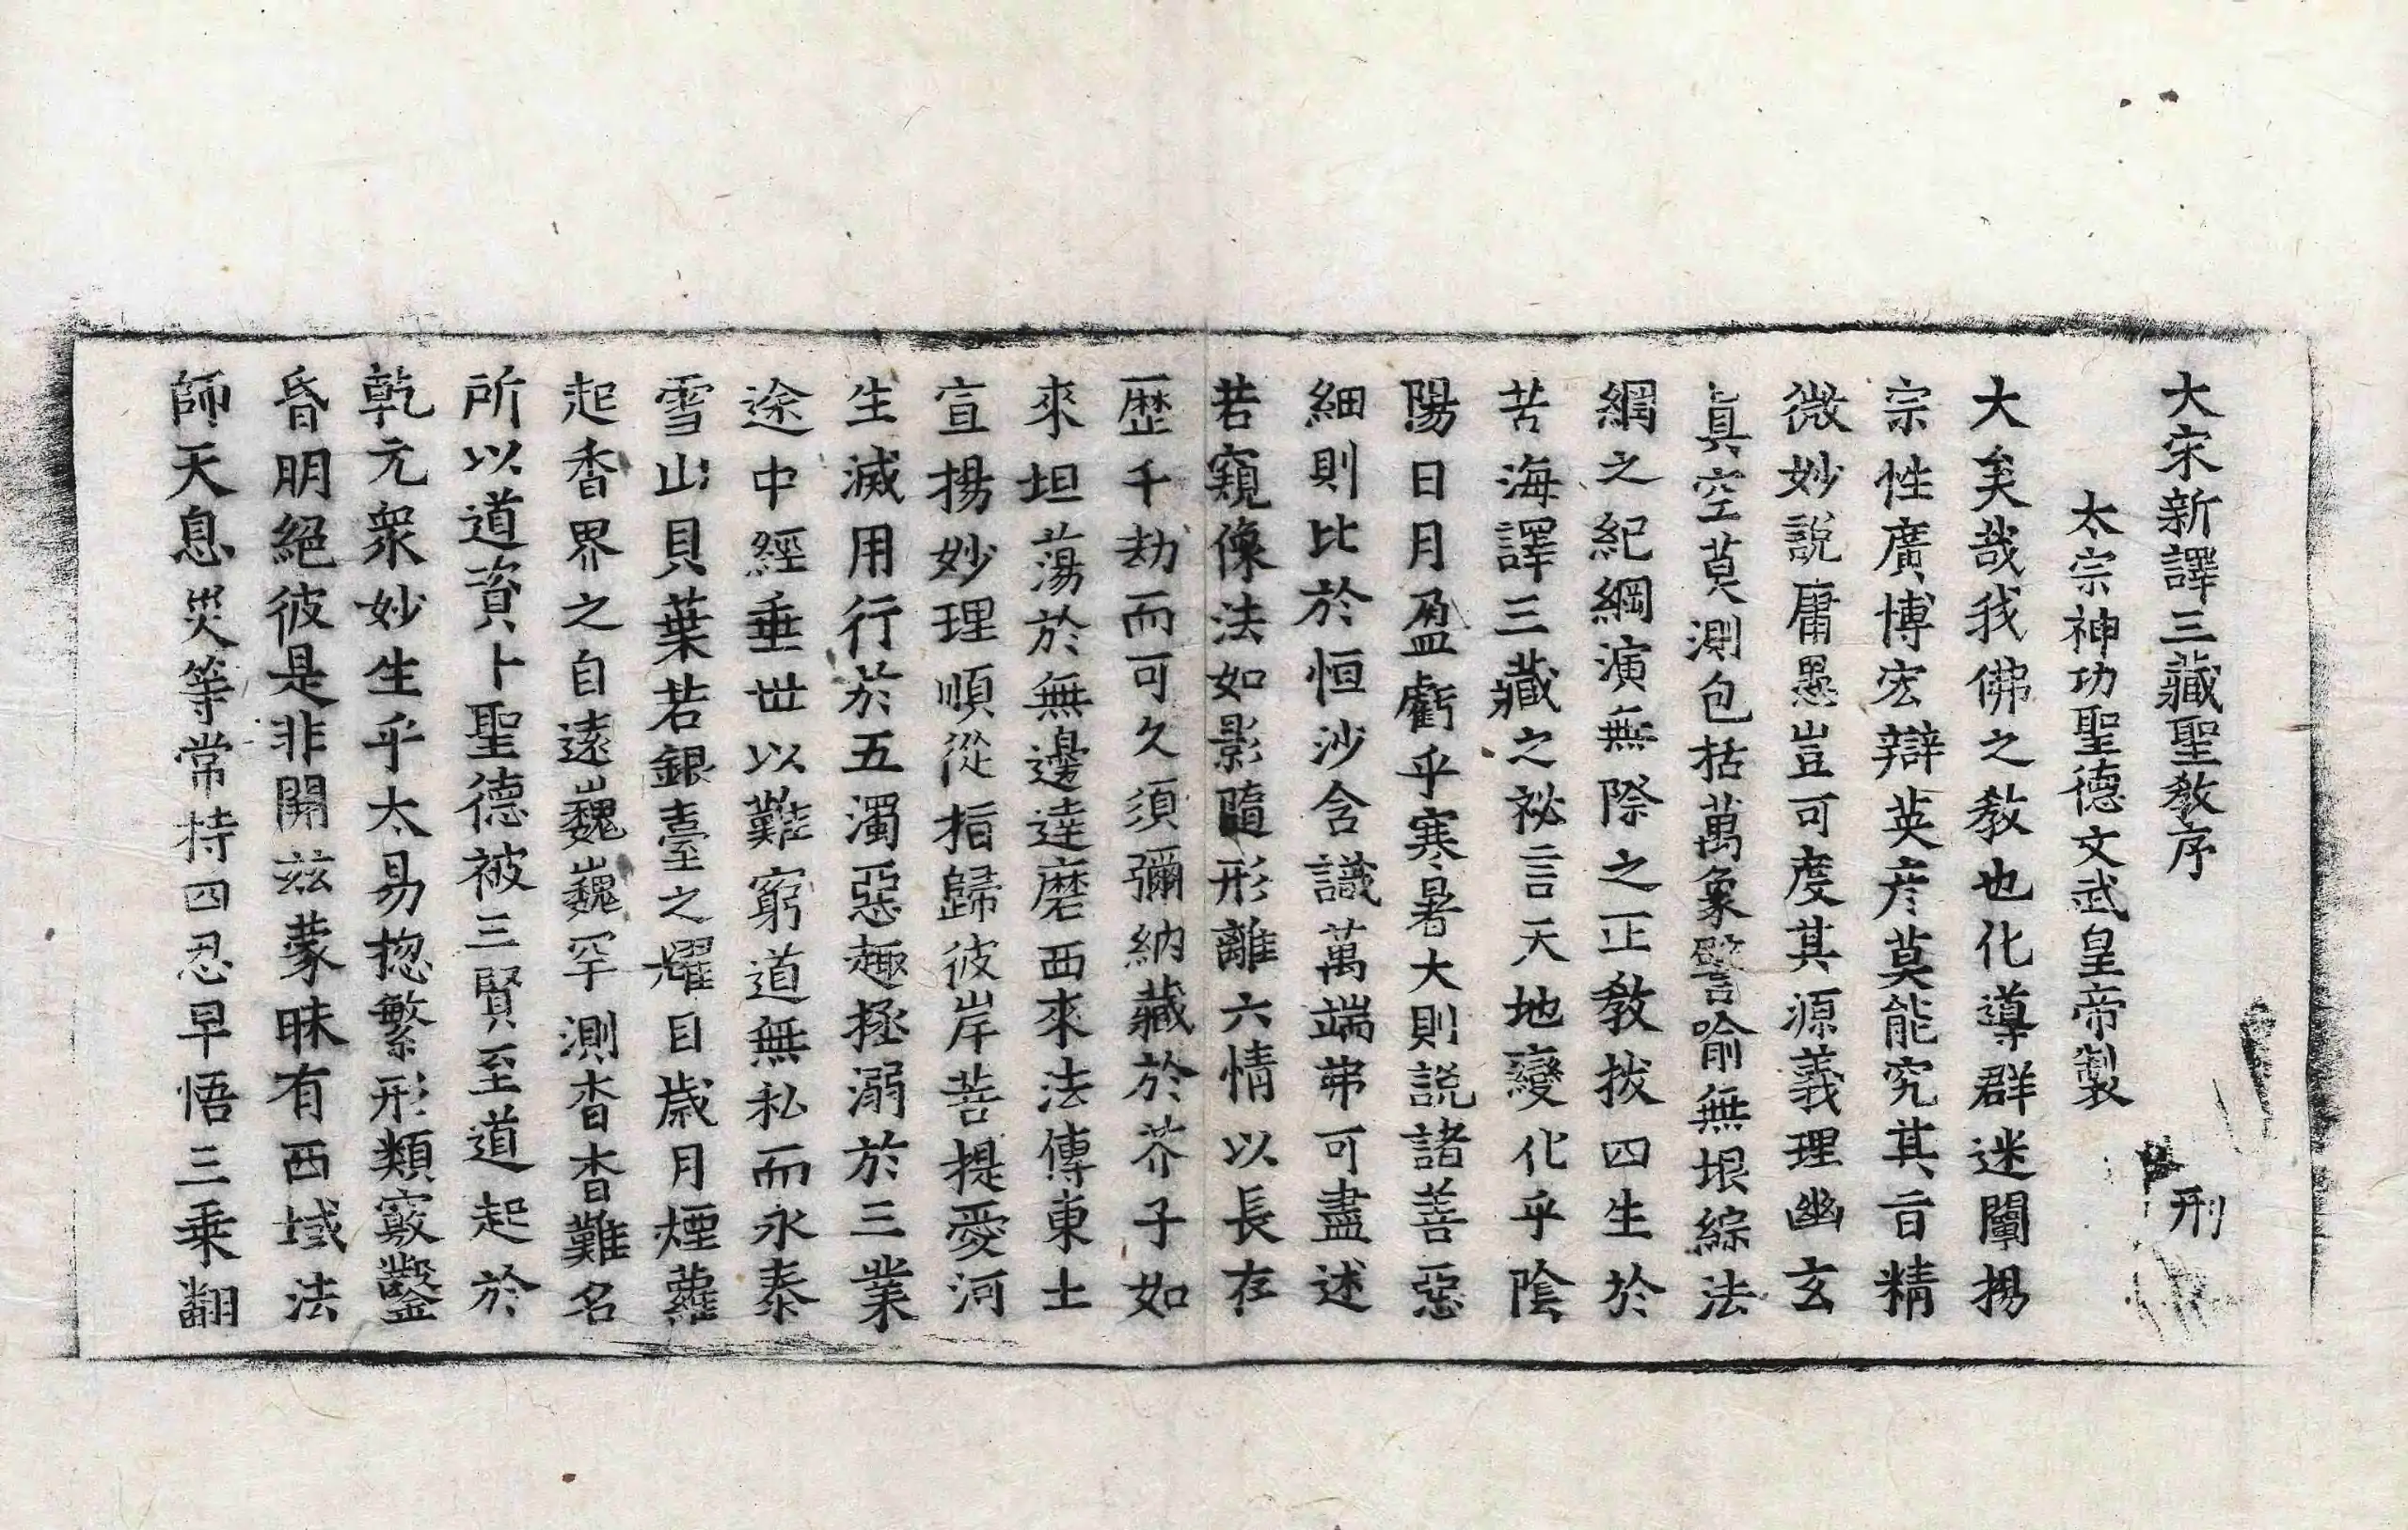 大宋新譯三藏聖教序　刑
太宗神功聖德文武皇帝製
大矣哉我佛之教也化導群迷闡揚
宗性廣博宏辯英彦莫能究其旨精
微妙說庸愚豈可度其源義理幽玄
真空莫測包括萬象譬喻無垠綜法
網之紀綱演無際之正教拔四生於
苦海譯三藏之祕言天地變化乎陰
陽日月盈虧乎寒暑大則說諸善惡
細則比於恒沙含識萬端弗可盡述
若窺像法如影隨形離六情以長存
歷千劫而可久須彌納藏於芥子如
來坦蕩於無邊達磨西來法傳東土
宣揚妙理順從指歸彼岸菩提愛河
生滅用行於五濁惡趣拯溺於三業
途中經垂世以難窮道無私而永泰
雪山貝葉若銀臺之耀目歲月煙蘿
起香界之自遠巍巍罕測杳杳難名
所以道資卜聖德被三賢至道起於
乾元衆妙生乎太易揔繁形類竅鑿
昏明絕彼是非開兹蒙昧有西域法
師天息災等常持四忍早悟三乘翻